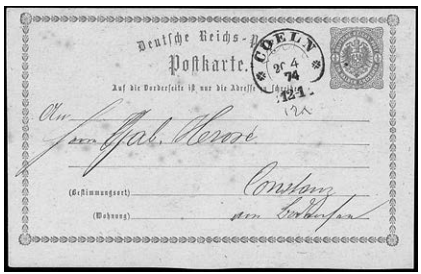 Deutsche Reichs-P
COELN
20 4
74
12-1
Postkarte.
Auf die Vorderseite ist nur die Adresse zu schreiben
An
Herrn Gab. Herosé
(Bestimmungsort) Constanz
(Wohnung) am Bodensee